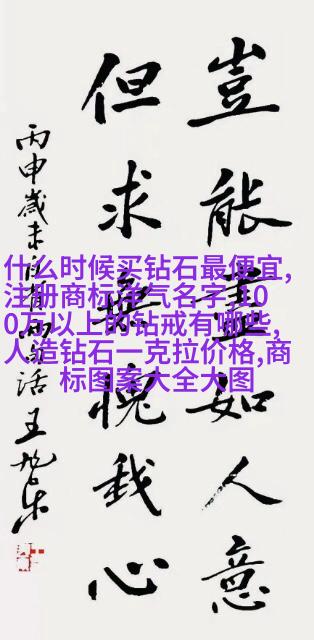 豈能盡如人意
但求無愧我心
丙申歲末
王旭东
什么时候买钻石最便宜,
注册商标洋气名字,10
0万以上的钻戒有哪些,
人造钻石一克拉价格,商
标图案大全大图